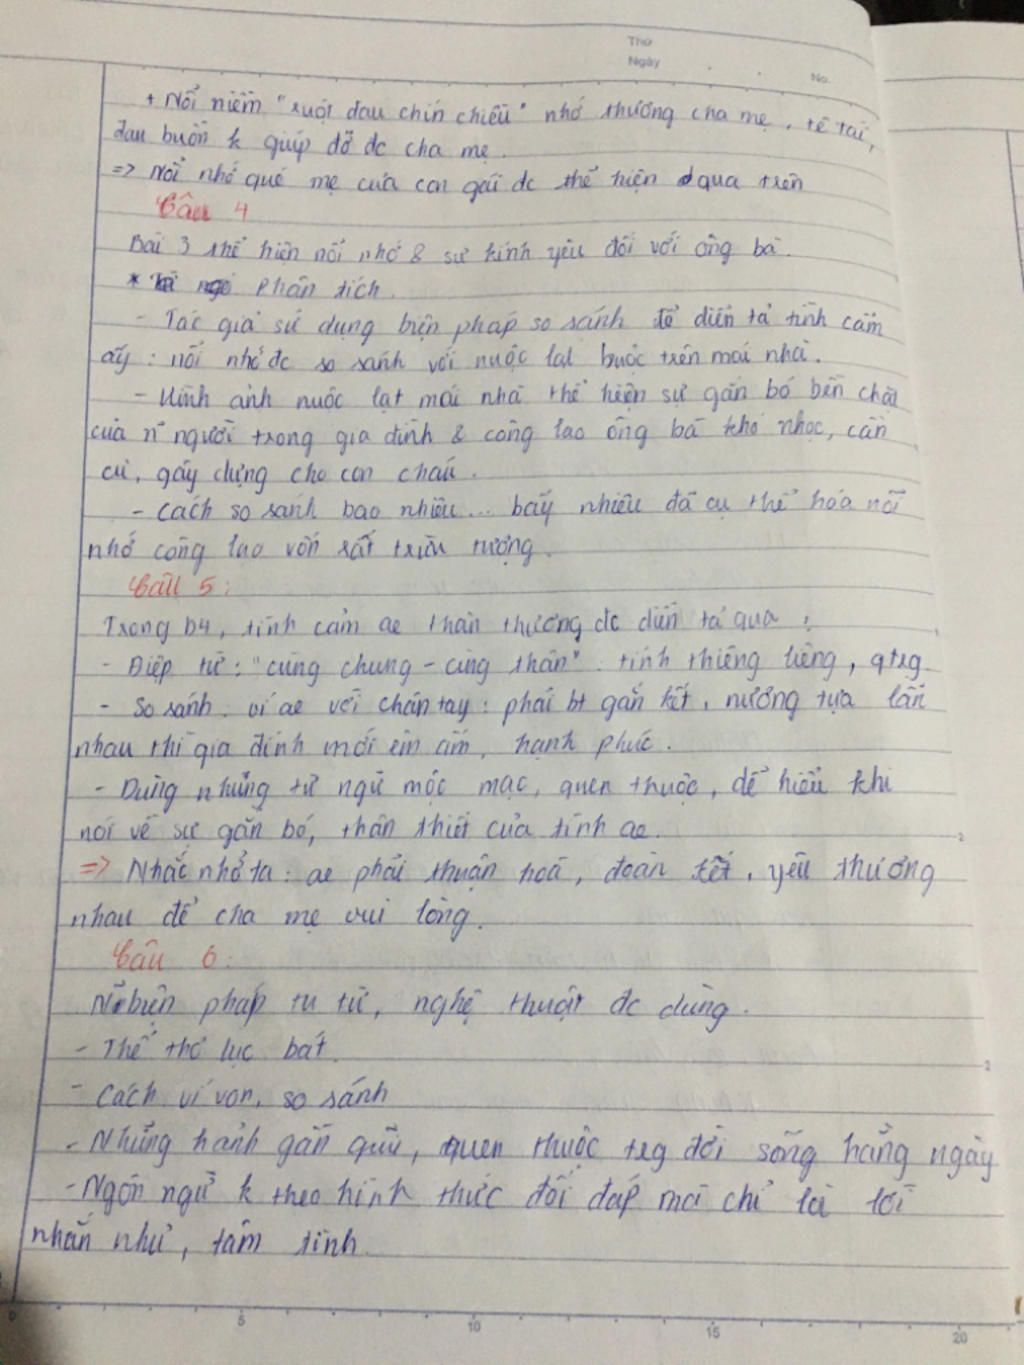 Thứ
Ngày
No.
+ Nỗi niềm "ruột đau chín chiều" nhớ thương cha mẹ, tê tái,
đau buồn k giúp đỡ đc cha mẹ.
=> Nỗi nhớ quê mẹ của con gái đc thể hiện qua trên
Câu 4
Bài 3 thể hiện nỗi nhớ & sự kính yêu đối với ông bà.
* Phân tích.
- Tác giả sử dụng biện pháp so sánh để diễn tả tình cảm
ấy: nỗi nhớ đc so sánh với nuộc lạt buộc trên mái nhà.
- Hình ảnh nuộc lạt mái nhà thể hiện sự gắn bó bền chặt
của n~ người trong gia đình & công lao ông bà khó nhọc, cần
cù, gây dựng cho con cháu.
- Cách so sánh bao nhiêu... bấy nhiêu đã cụ thể hóa nỗi
nhớ công lao vốn rất trừu tượng.
Câu 5:
Trong b4, tình cảm ae thân thương đc diễn tả qua:
- Điệp từ: "cùng chung - cùng thân": tình thiêng liêng, qtrg.
- So sánh: ví ae với chân tay: phải bt gắn kết, nương tựa lẫn
nhau thì gia đình mới êm ấm, hạnh phúc.
- Dùng những từ ngữ mộc mạc, quen thuộc, dễ hiểu khi
nói về sự gắn bó, thân thiết của tình ae.
=> Nhắc nhở ta: ae phải thuận hoà, đoàn kết, yêu thương
nhau để cha mẹ vui lòng.
Câu 6:
N~ biện pháp tu từ, nghệ thuật đc dùng.
- Thể thơ lục bát.
- Cách ví von, so sánh
- Những hảnh gần gũi, quen thuộc trg đời sống hằng ngày
- Ngôn ngữ k theo hình thức đối đáp mà chỉ là lời
nhắn nhủ, tâm tình.
0 5 10 15 20